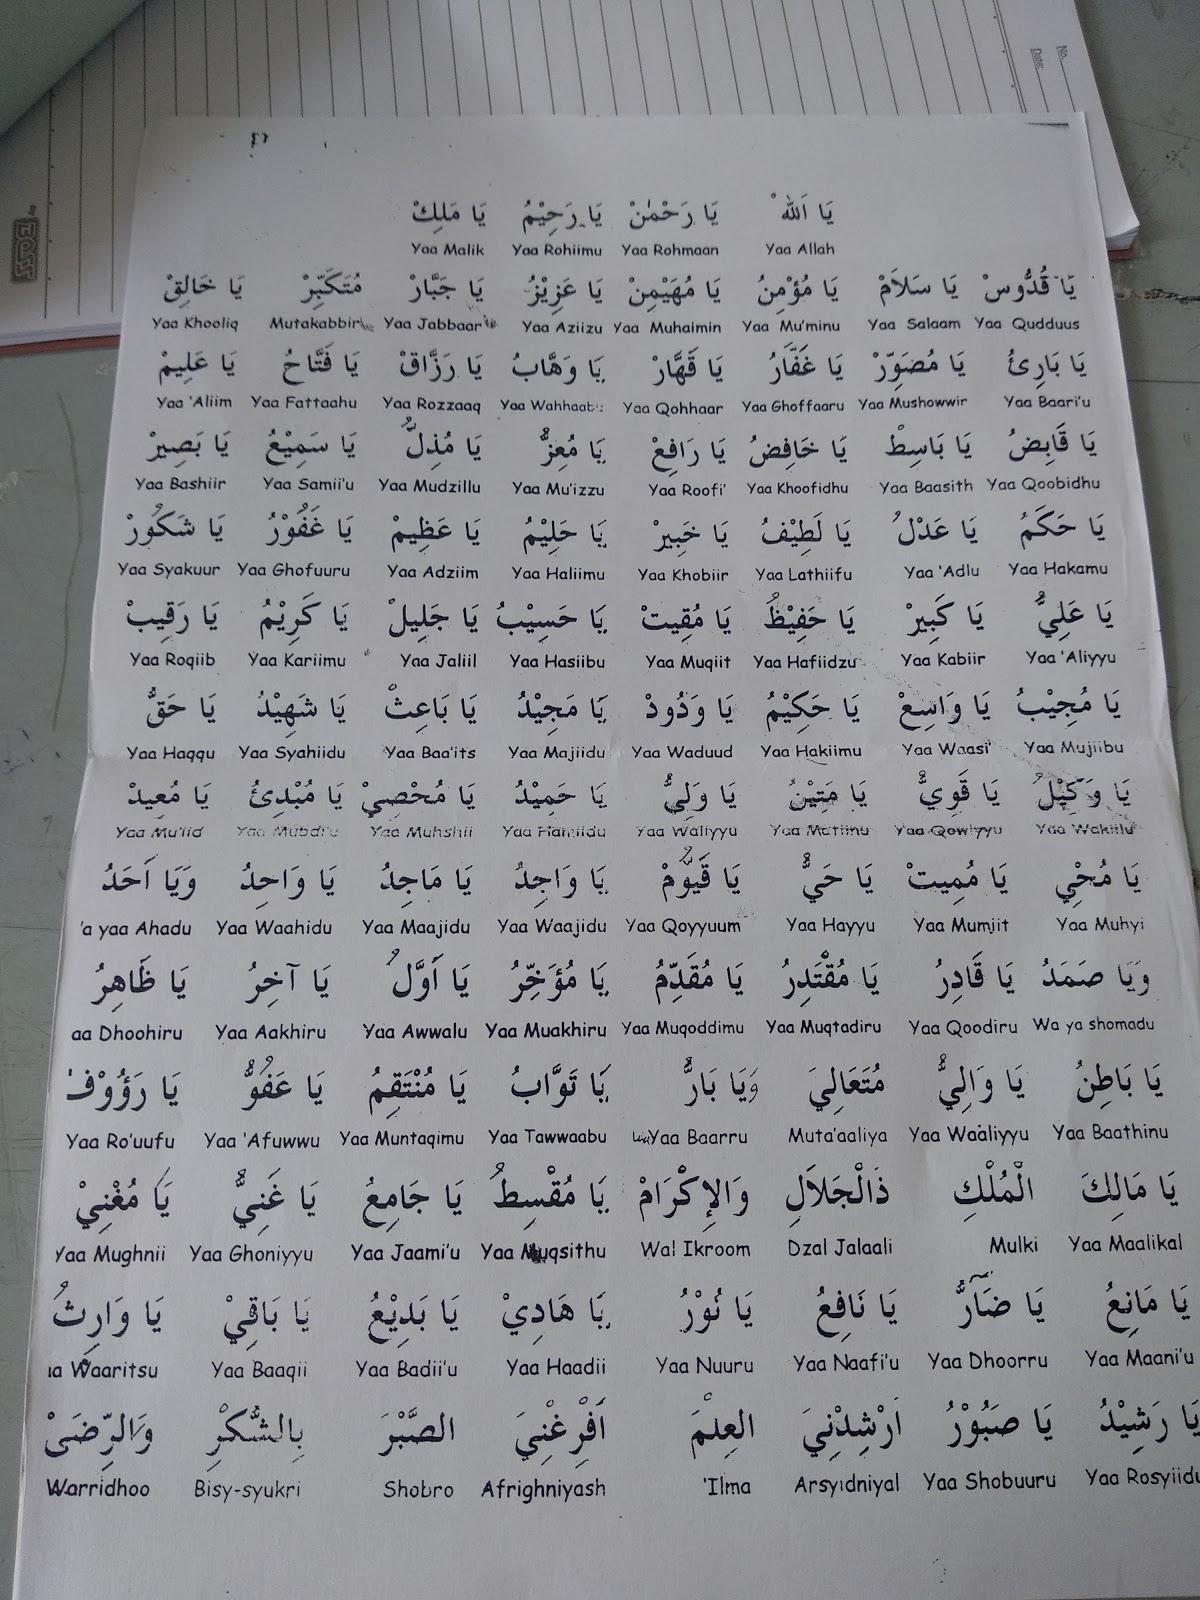 No.
Date:
يَا اَللهْ يَا رَحْمٰنْ يَا رَحِيْمُ يَا مَلِكْ
Yaa Malik Yaa Rohiimu Yaa Rohmaan Yaa Allah
يَا قُدُّوسْ يَا سَلاَمْ يَا مُؤْمِنُ يَا مُهَيْمِنْ يَا عَزِيْزُ يَا جَبَّارْ مُتَكَبِّرْ يَا خَالِقْ
Yaa Khooliq Mutakabbir Yaa Jabbaar Yaa Aziizu Yaa Muhaimin Yaa Mu'minu Yaa Salaam Yaa Qudduus
يَا بَارِئُ يَا مُصَوِّرْ يَا غَفَّارُ يَا قَهَّارْ يَا وَهَّابُ يَا رَزَّاقْ يَا فَتَّاحُ يَا عَلِيمْ
Yaa 'Aliim Yaa Fattaahu Yaa Rozzaaq Yaa Qohhaar Yaa Ghoffaaru Yaa Mushowwir Yaa Baari'u
يَا قَابِضُ يَا بَاسِطْ يَا خَافِضُ يَا رَافِعْ يَا مُعِزُّ يَا مُذِلُّ يَا سَمِيْعُ يَا بَصِيرْ
Yaa Bashiir Yaa Samii'u Yaa Mudzillu Yaa Mu'izzu Yaa Roofi' Yaa Khoofidhu Yaa Baasith Yaa Qoobidhu
يَا حَكَمُ يَا عَدْلُ يَا لَطِيْفُ يَا خَبِيرْ يَا حَلِيْمُ يَا عَظِيمْ يَا غَفُوْرُ يَا شَكُورْ
Yaa Syakuur Yaa Ghofuuru Yaa Adziim Yaa Haliimu Yaa Khobiir Yaa Lathiifu Yaa 'Adlu Yaa Hakamu
يَا عَلِيُّ يَا كَبِيرْ يَا حَفِيْظُ يَا مُقِيتْ يَا حَسِيْبُ يَا جَلِيلْ يَا كَرِيْمُ يَا رَقِيبْ
Yaa Roqiib Yaa Kariimu Yaa Jaliil Yaa Hasiibu Yaa Muqiit Yaa Hafiidzu Yaa Kabiir Yaa 'Aliyyu
يَا مُجِيْبُ يَا وَاسِعْ يَا حَكِيْمُ يَا وَدُودْ يَا مَجِيْدُ يَا بَاعِثْ يَا شَهِيْدُ يَا حَقُّ
Yaa Haqqu Yaa Syahiidu Yaa Baa'its Yaa Majiidu Yaa Waduud Yaa Hakiimu Yaa Waasi' Yaa Mujiibu
يَا وَكِيْلُ يَا قَوِيُّ يَا مَتِيْنُ يَا وَلِيُّ يَا حَمِيْدُ يَا مُحْصِيْ يَا مُبْدِئُ يَا مُعِيدْ
Yaa Mu'iid Yaa Mubdi'u Yaa Muhshii Yaa Hamiidu Yaa Waliyyu Yaa Matiinu Yaa Qowiyyu Yaa Wakiilu
يَا مُحْيِ يَا مُمِيتْ يَا حَيُّ يَا قَيُّوْمْ يَا وَاجِدُ يَا مَاجِدُ يَا وَاحِدُ وَيَا اَحَدُ
'a yaa Ahadu Yaa Waahidu Yaa Maajidu Yaa Waajidu Yaa Qoyyuum Yaa Hayyu Yaa Mumjit Yaa Muhyi
وَيَا صَمَدُ يَا قَادِرُ يَا مُقْتَدِرُ يَا مُقَدِّمُ يَا مُؤَخِّرُ يَا أَوَّلُ يَا آخِرُ يَا ظَاهِرُ
aa Dhoohiru Yaa Aakhiru Yaa Awwalu Yaa Muakhiru Yaa Muqoddimu Yaa Muqtadiru Yaa Qoodiru Wa ya shomadu
يَا بَاطِنُ يَا وَالِيُّ مُتَعَالِيَ وَيَا بَارُّ يَا تَوَّابُ يَا مُنْتَقِمُ يَا عَفُوُّ يَا رَؤُوْفُ
Yaa Ro'uufu Yaa 'Afuwwu Yaa Muntaqimu Yaa Tawwaabu Yaa Baarru Muta'aaliya Yaa Waaliyyu Yaa Baathinu
يَا مَالِكَ الْمُلْكِ ذَالْجَلاَلِ وَالإِكْرَامْ يَا مُقْسِطُ يَا جَامِعُ يَا غَنِيُّ يَا مُغْنِيْ
Yaa Mughnii Yaa Ghoniyyu Yaa Jaami'u Yaa Muqsithu Wal Ikroom Dzal Jalaali Mulki Yaa Maalikal
يَا مَانِعُ يَا ضَآرُّ يَا نَافِعُ يَا نُوْرُ يَا هَادِيْ يَا بَدِيْعُ يَا بَاقِيْ يَا وَارِثُ
ıa Waaritsu Yaa Baaqii Yaa Badii'u Yaa Haadii Yaa Nuuru Yaa Naafi'u Yaa Dhoorru Yaa Maani'u
يَا رَشِيْدُ يَا صَبُوْرُ اَرْشِدْنِيَ العِلْمَ اَفْرِغْنِيَ الصَّبْرَ بِالشُّكْرِ وَالرِّضَىْ
Warridhoo Bisy-syukri Shobro Afrighniyash 'Ilma Arsyidniyal Yaa Shobuuru Yaa Rosyiidu